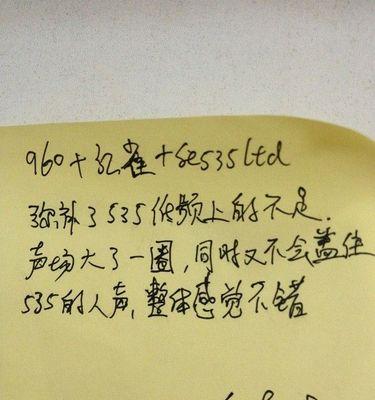 960+孔雀+se535ltd
弥补了535低频上的不足.
声场大了一圈,同时又不会盖住
535的人声,整体感觉不错